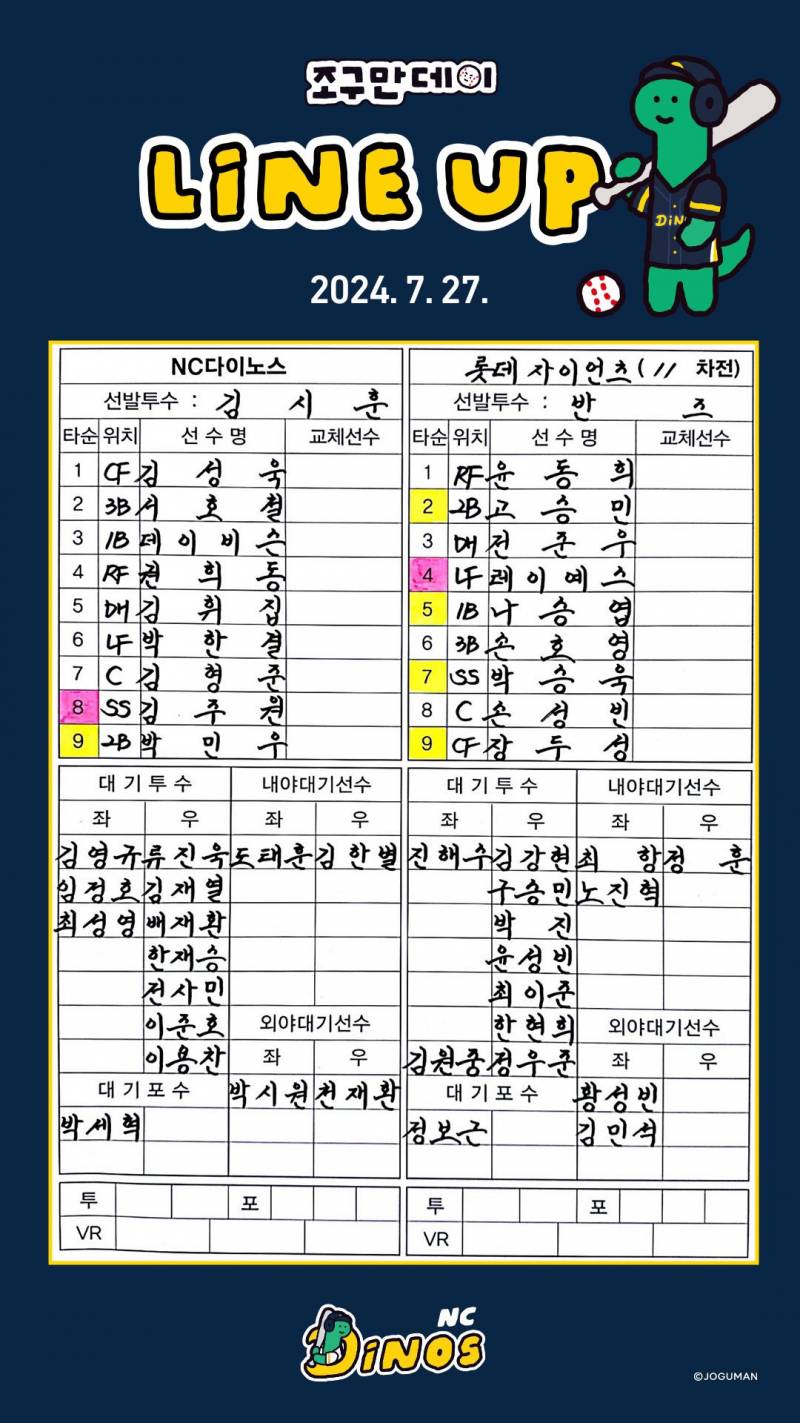 조구만데이
LINE UP
DiN
2024. 7. 27.
NC다이노스
선발투수 : 김 시 훈
타순 위치 선 수 명 교체선수
1 CF 김 성 욱
2 3B 서 호 철
3 1B 데 이 비 슨
4 RF 권 희 동
5 DH 김 휘 집
6 LF 박 한 결
7 C 김 형 준
8 SS 김 주 원
9 2B 박 민 우
롯데 자이언츠 ( 11 차전)
선발투수 : 반 즈
타순 위치 선 수 명 교체선수
1 RF 윤 동 희
2 2B 고 승 민
3 DH 전 준 우
4 LF 레 이 예 스
5 1B 나 승 엽
6 3B 손 호 영
7 SS 박 승 욱
8 C 손 성 빈
9 CF 장 두 성
대 기 투 수 내야대기선수
좌 우 좌 우
김영규 류진욱 도태훈 김한별
임정호 김재열
최성영 배재환
한재승
전사민
이준호 외야대기선수
이용찬 좌 우
대 기 포 수 박시원 천재환
박세혁
투 포
VR
대 기 투 수 내야대기선수
좌 우 좌 우
진해수 김강현 최 항 정 훈
구승민 노진혁
박 진
윤성빈
최이준
한현희 외야대기선수
김원중 정우준 좌 우
대 기 포 수 황성빈
정보근 김민석
투 포
VR
NC
DiNOS
©JOGUMAN